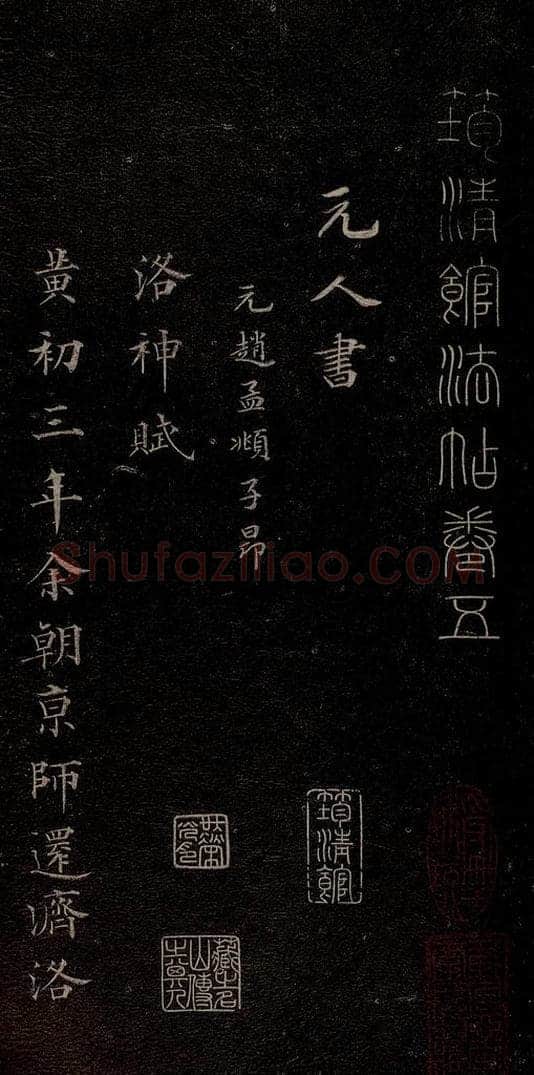 筠清館法帖卷五
元人書
元趙孟頫子昂
洛神賦
黃初三年余朝京師還濟洛
筠清館
Shufaziliao.COM